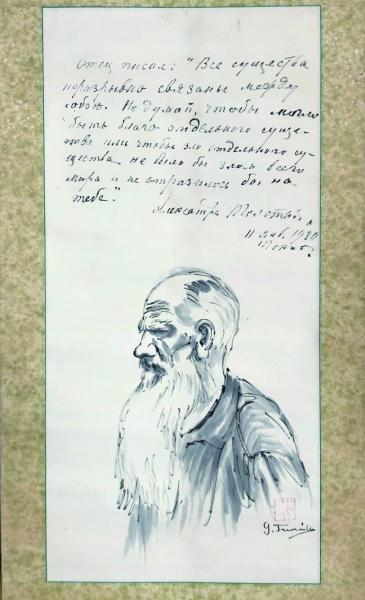 Отец писал: "Все существа
неразрывно связаны между
собою. Не думай, чтобы могло
быть благо отдельного суще-
ства или чтобы зло отдельного су-
щества не было бы злом всего
мира и не отразилось бы на
тебе".
Александра Толстая
11 янв. 1930
Токио.